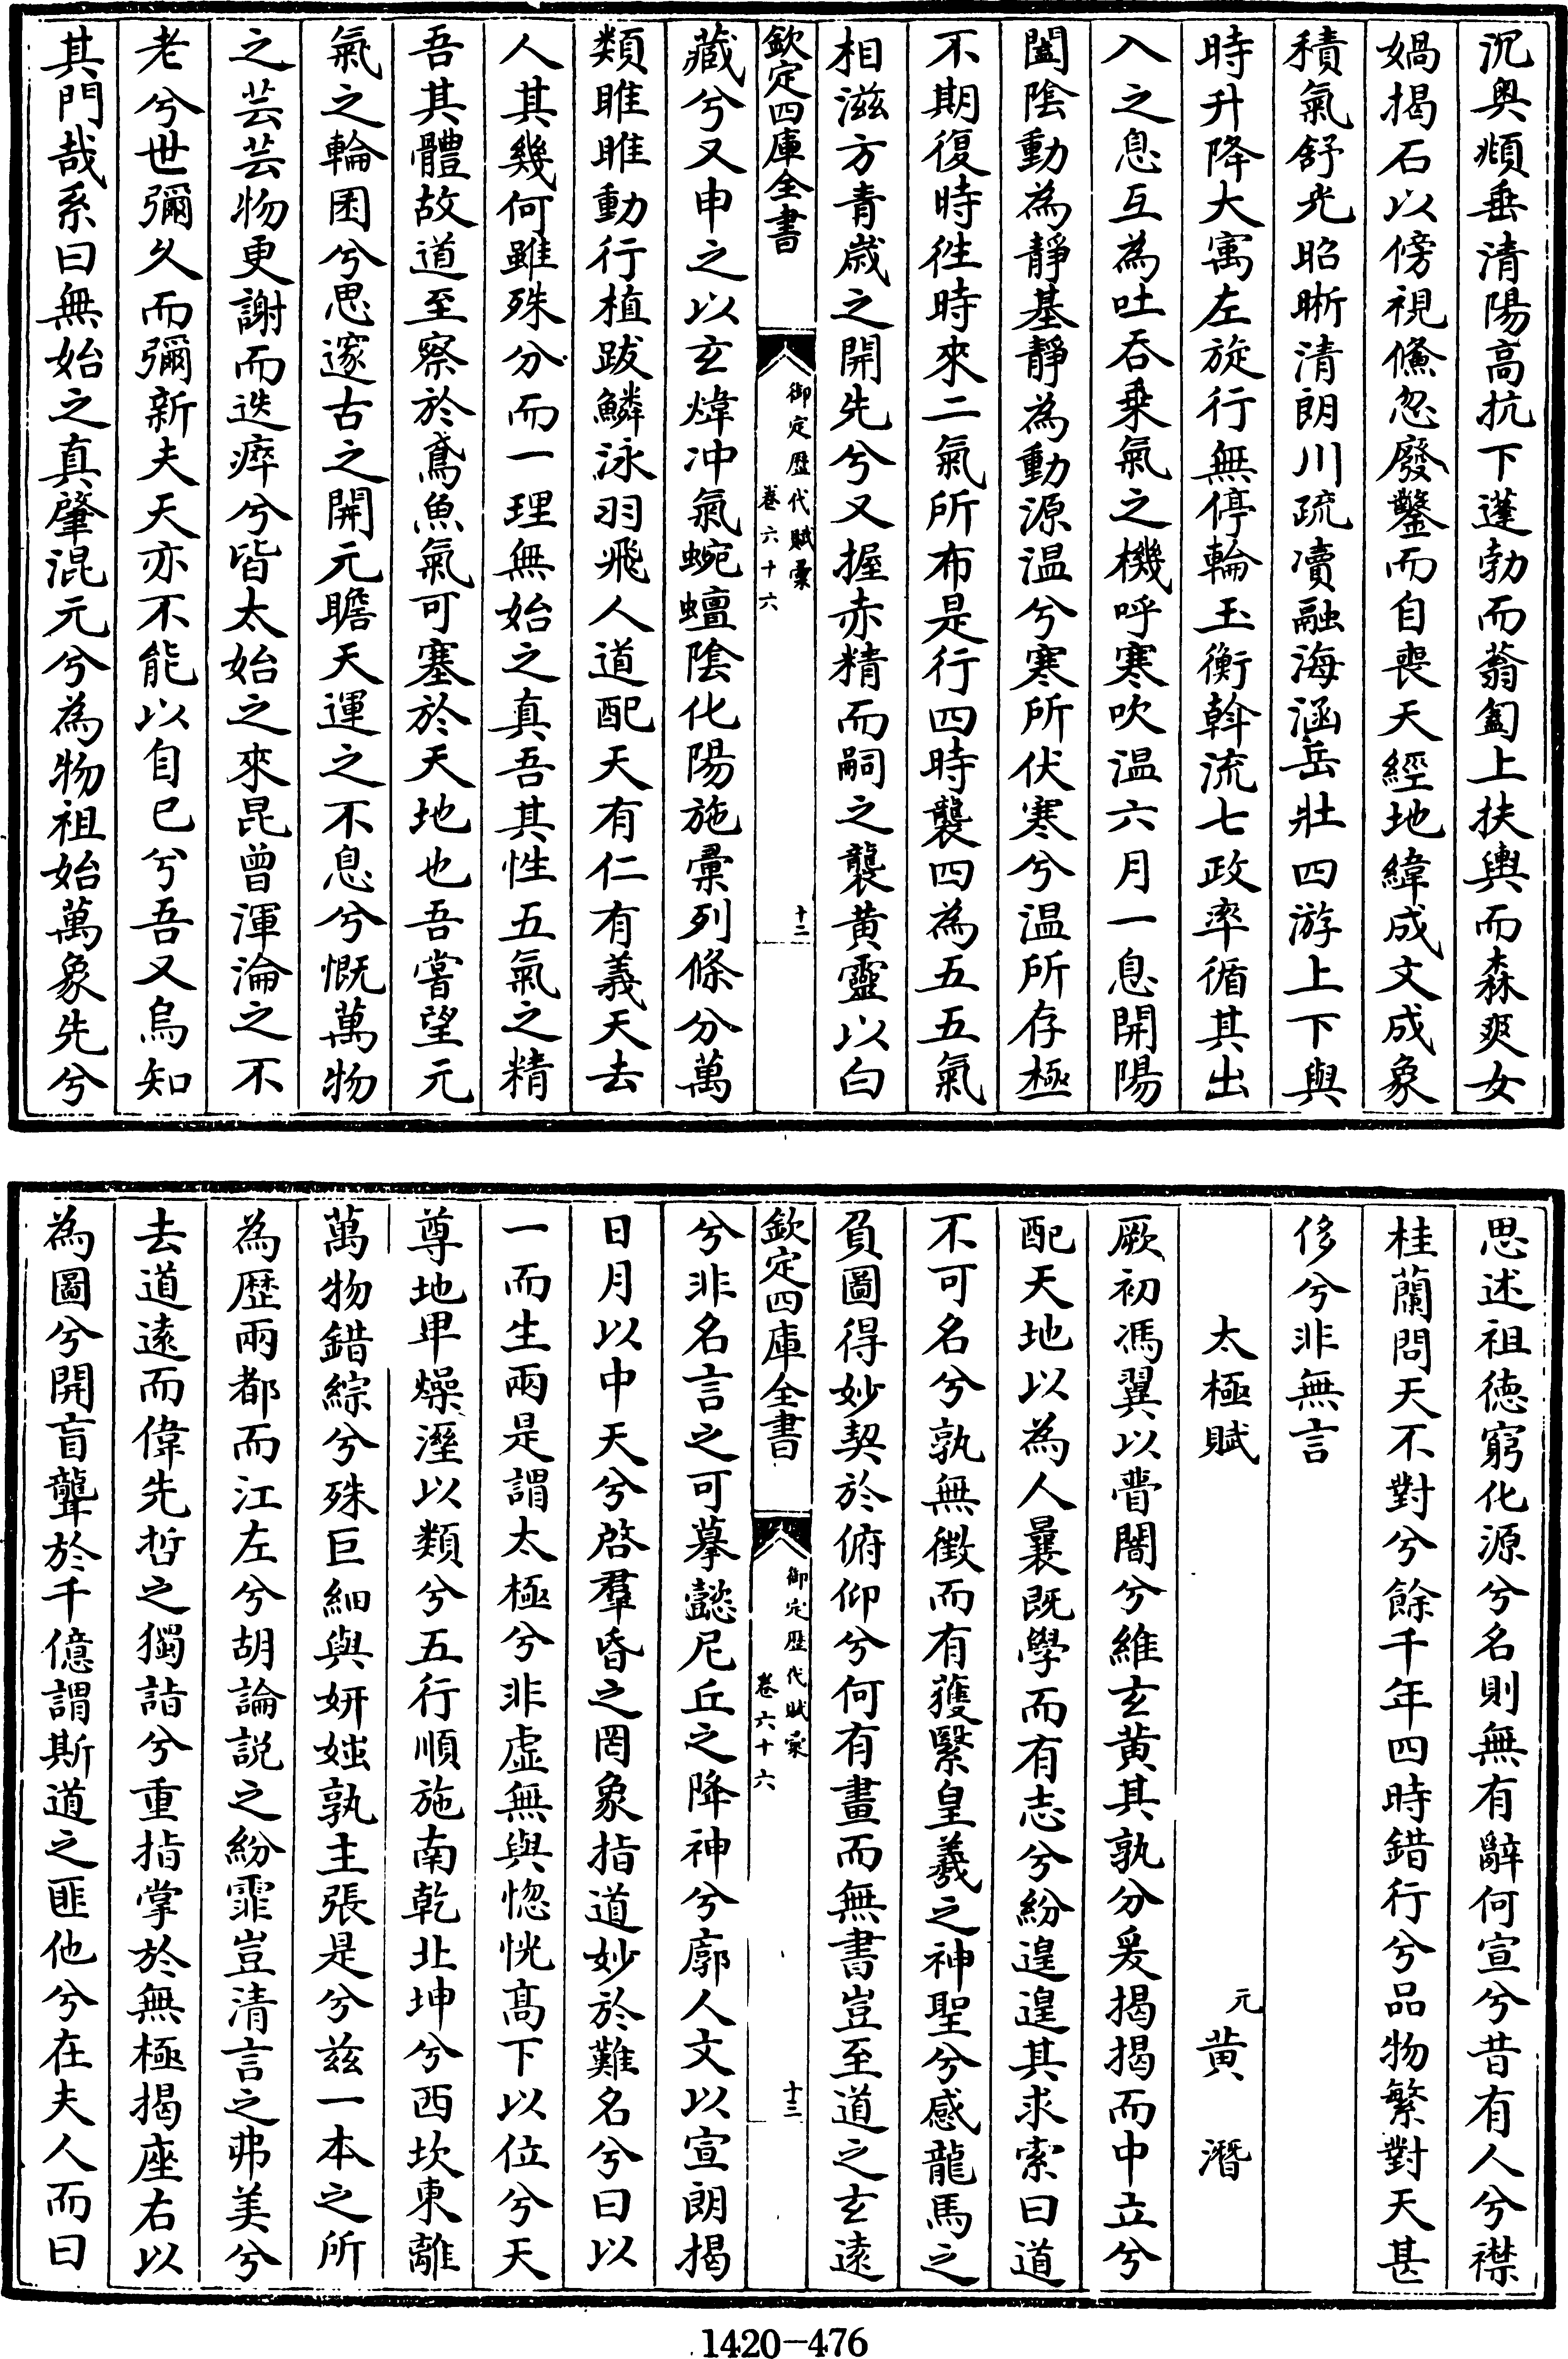 沉奥頫垂清陽高抗下蓬勃而蓊匌上扶輿而森爽女
媧揭石以傍視儵忽廢鑿而自喪天經地緯成文成象
積氣舒光昭晣清朗川疏瀆融海涵岳壯四游上下與
時升降大寓左旋行無停輪玉衡斡流七政率循其出
入之息互為吐吞乗氣之機呼寒吹温六月一息開陽
闔陰動為靜基靜為動源温兮寒所伏寒兮温所存極
不期復時徃時來二氣所布是行四時襲四為五五氣
相滋方青嵗之開先兮又握赤精而嗣之襲黄靈以白
欽定四庫全書
御定歴代賦彙
卷六十六
十二
藏兮又申之以玄煒冲氣蜿蟺陰化陽施彚列條分萬
類睢睢動行植跋鱗泳羽飛人道配天有仁有義天去
人其幾何雖殊分而一理無始之真吾其性五氣之精
吾其體故道至察於鳶魚氣可塞於天地也吾嘗望元
氣之輪囷兮思邃古之開元瞻天運之不息兮慨萬物
之芸芸物更謝而迭瘁兮皆太始之來昆曾渾淪之不
老兮世彌久而彌新夫天亦不能以自已兮吾又烏知
其門哉系曰無始之真肇混元兮為物祖始萬象先兮
思述祖徳窮化源兮名則無有辭何宣兮昔有人兮襟
桂蘭問天不對兮餘千年四時錯行兮品物繁對天甚
侈兮非無言
太極賦
元
黄潛
厥初馮翼以瞢闇兮維玄黄其孰分爰揭揭而中立兮
配天地以為人曩既學而有志兮紛遑遑其求索曰道
不可名兮孰無徴而有獲繄皇羲之神聖兮感龍馬之
負圖得妙契於俯仰兮何有畫而無書豈至道之玄逺
欽定四庫全書
御定歴代賦彙
卷六十六
十三
兮非名言之可摹懿尼丘之降神兮廓人文以宣朗揭
日月以中天兮啓羣昏之罔象指道妙於難名兮曰以
一而生兩是謂太極兮非虚無與惚恍高下以位兮天
尊地卑燥溼以類兮五行順施南乾北坤兮西坎東離
萬物錯綜兮殊巨細與妍媸孰主張是兮兹一本之所
為歴兩都而江左兮胡論説之紛霏豈清言之弗美兮
去道逺而偉先哲之獨詣兮重指掌於無極揭座右以
為圖兮開盲聾於千億謂斯道之匪他兮在夫人而曰
1420-476